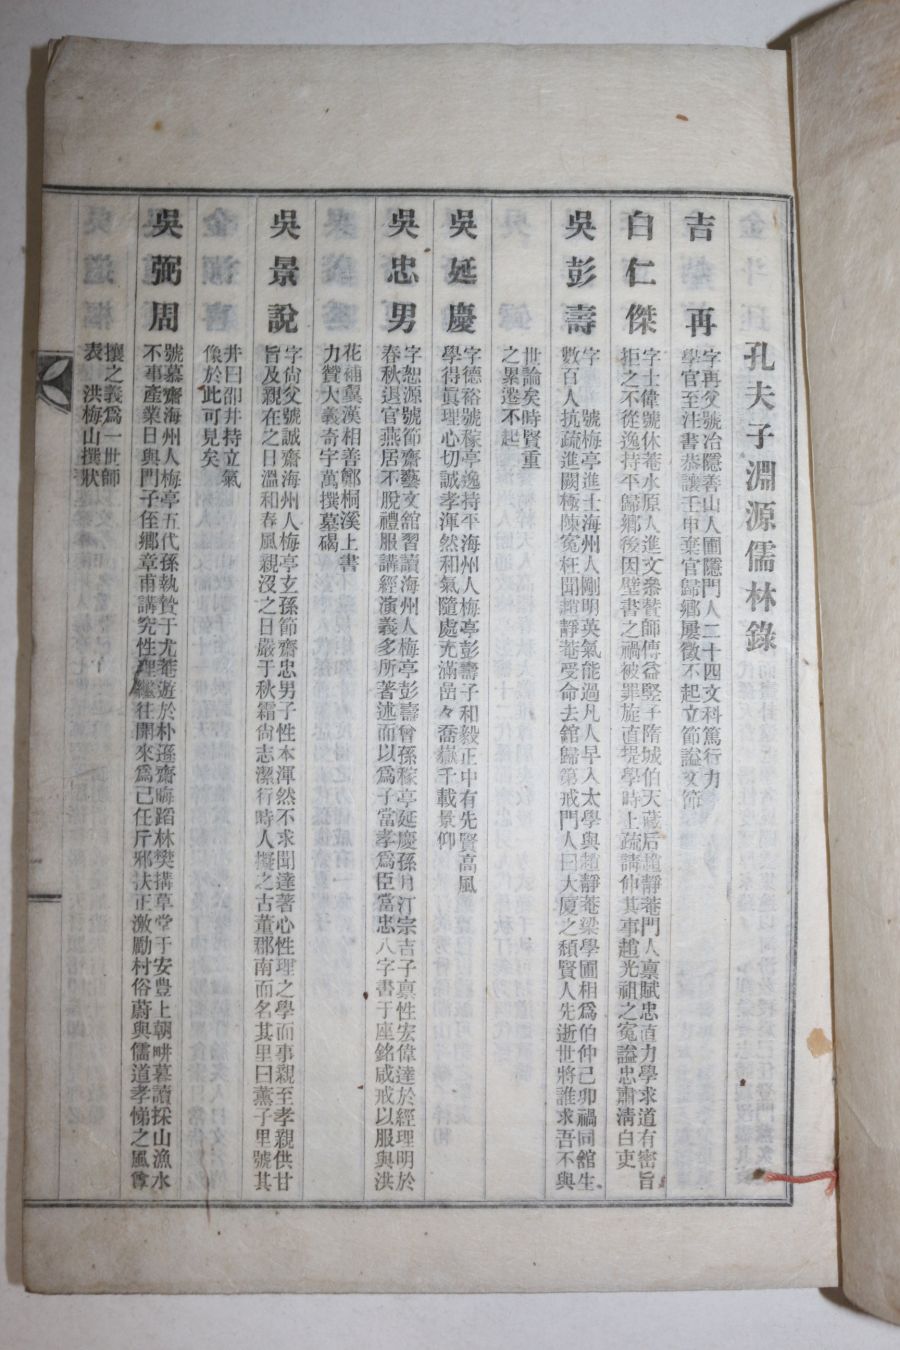 孔夫子淵源儒林錄
吉再
字再父號冶隱善山人圃隱門人二十四文科篤行力
學官至注書恭讓壬申棄官歸鄉屢徵不起立節謚文節
白仁傑
字士偉號休菴水原人進文叅贊師傅益堅子隋城伯天藏后趙靜菴門人禀賦忠直力學求道有密旨
拒之不從逸持平歸鄉後因壁書之禍被罪旋直堤學時上疏請伸其事趙光祖之寃謚忠肅清白吏
吳彭壽
字 號梅亭進士海州人剛明英氣能過凡人早入太學與趙靜菴梁學圃相爲伯仲己卯禍同舘生
數百人抗疏進闕極陳寃枉聞趙靜菴受命去舘歸第戒門人曰大厦之頹賢人先逝世將誰求吾不與
世論矣時賢重
之累遷不起
吳延慶
字德裕號稼亭逸持平海州人梅亭彭壽子和毅正中有先賢高風
學得眞理心切誠孝渾然和氣隨處充滿嵒々喬嶽千載景仰
吳忠男
字恕源號節齋藝文舘習讀海州人梅亭彭壽曾孫稼亭延慶孫月汀宗吉子禀性宏偉達於經理明於
春秋退官燕居不脫禮服講經演義多所著述而以爲子當孝爲臣當忠八字書于座銘咸戒以服與洪
花補翼漢相善鄭桐溪上書
力贊大義奇宇萬撰墓碣
吳景說
字尙父號誠齋海州人梅亭玄孫節齋忠男子性本渾然不求聞達著心性理之學而事親至孝親供甘
旨及親在之日溫和春風親沒之日嚴于秋霜尙志潔行時人擬之古董郡南而名其里曰薰子里號其
井曰卲井持立氣
像於此可見矣
吳弼周
號慕齋海州人梅亭五代孫執贄于尤菴遊於朴遜齋晦蹈林樊搆草堂于安豊上朝畊暮讀採山漁水
不事產業日與門子侄鄉章甫講究性理繼往開來爲己任斥邪扶正激勵村俗蔚與儒道孝悌之風尊
攘之義爲一世師
表 洪梅山撰狀